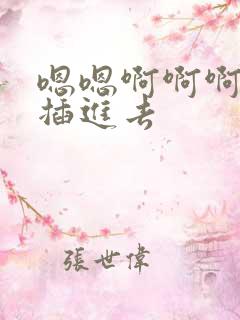 嗯嗯啊啊啊
插進去
張世偉